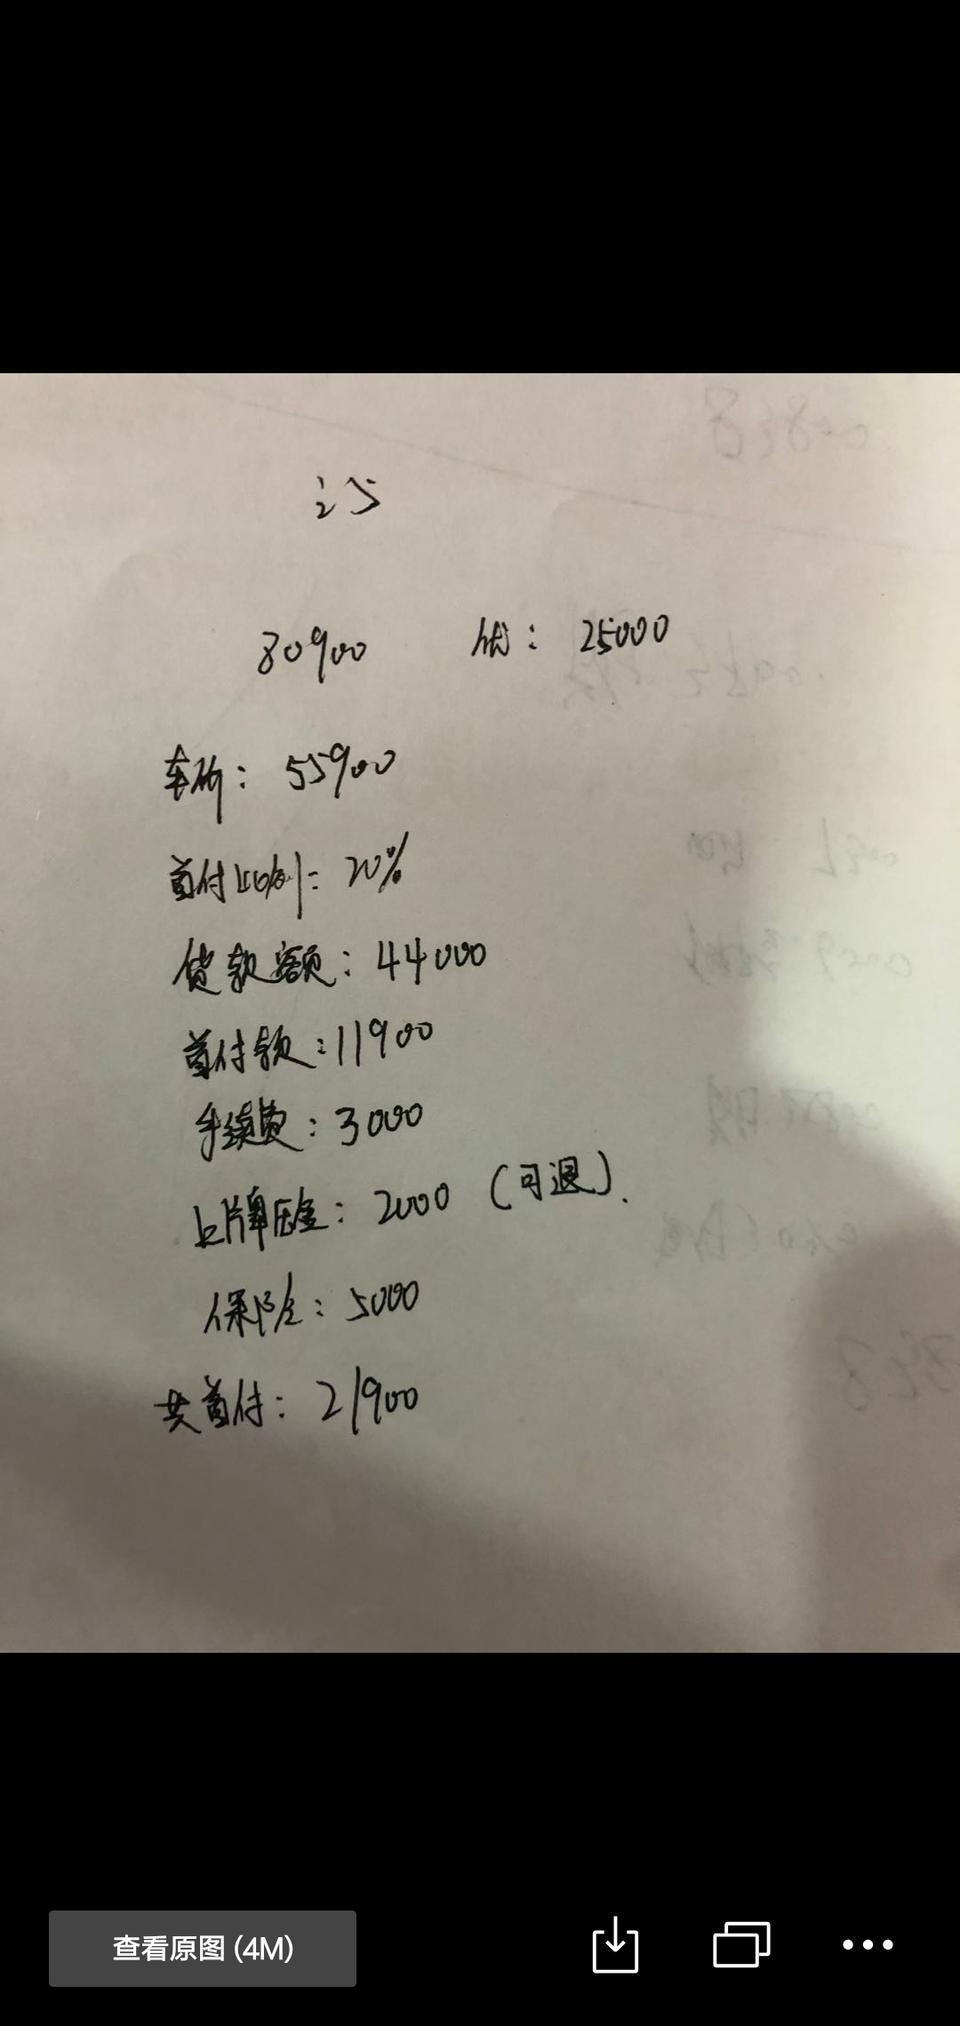 80900 优：25000
车价：55900
首付比例：20%
贷款额：44000
首付款：11900
手续费：3000
上牌压金：2000（可退）.
保险：5000
共首付：21900
查看原图 (4M)